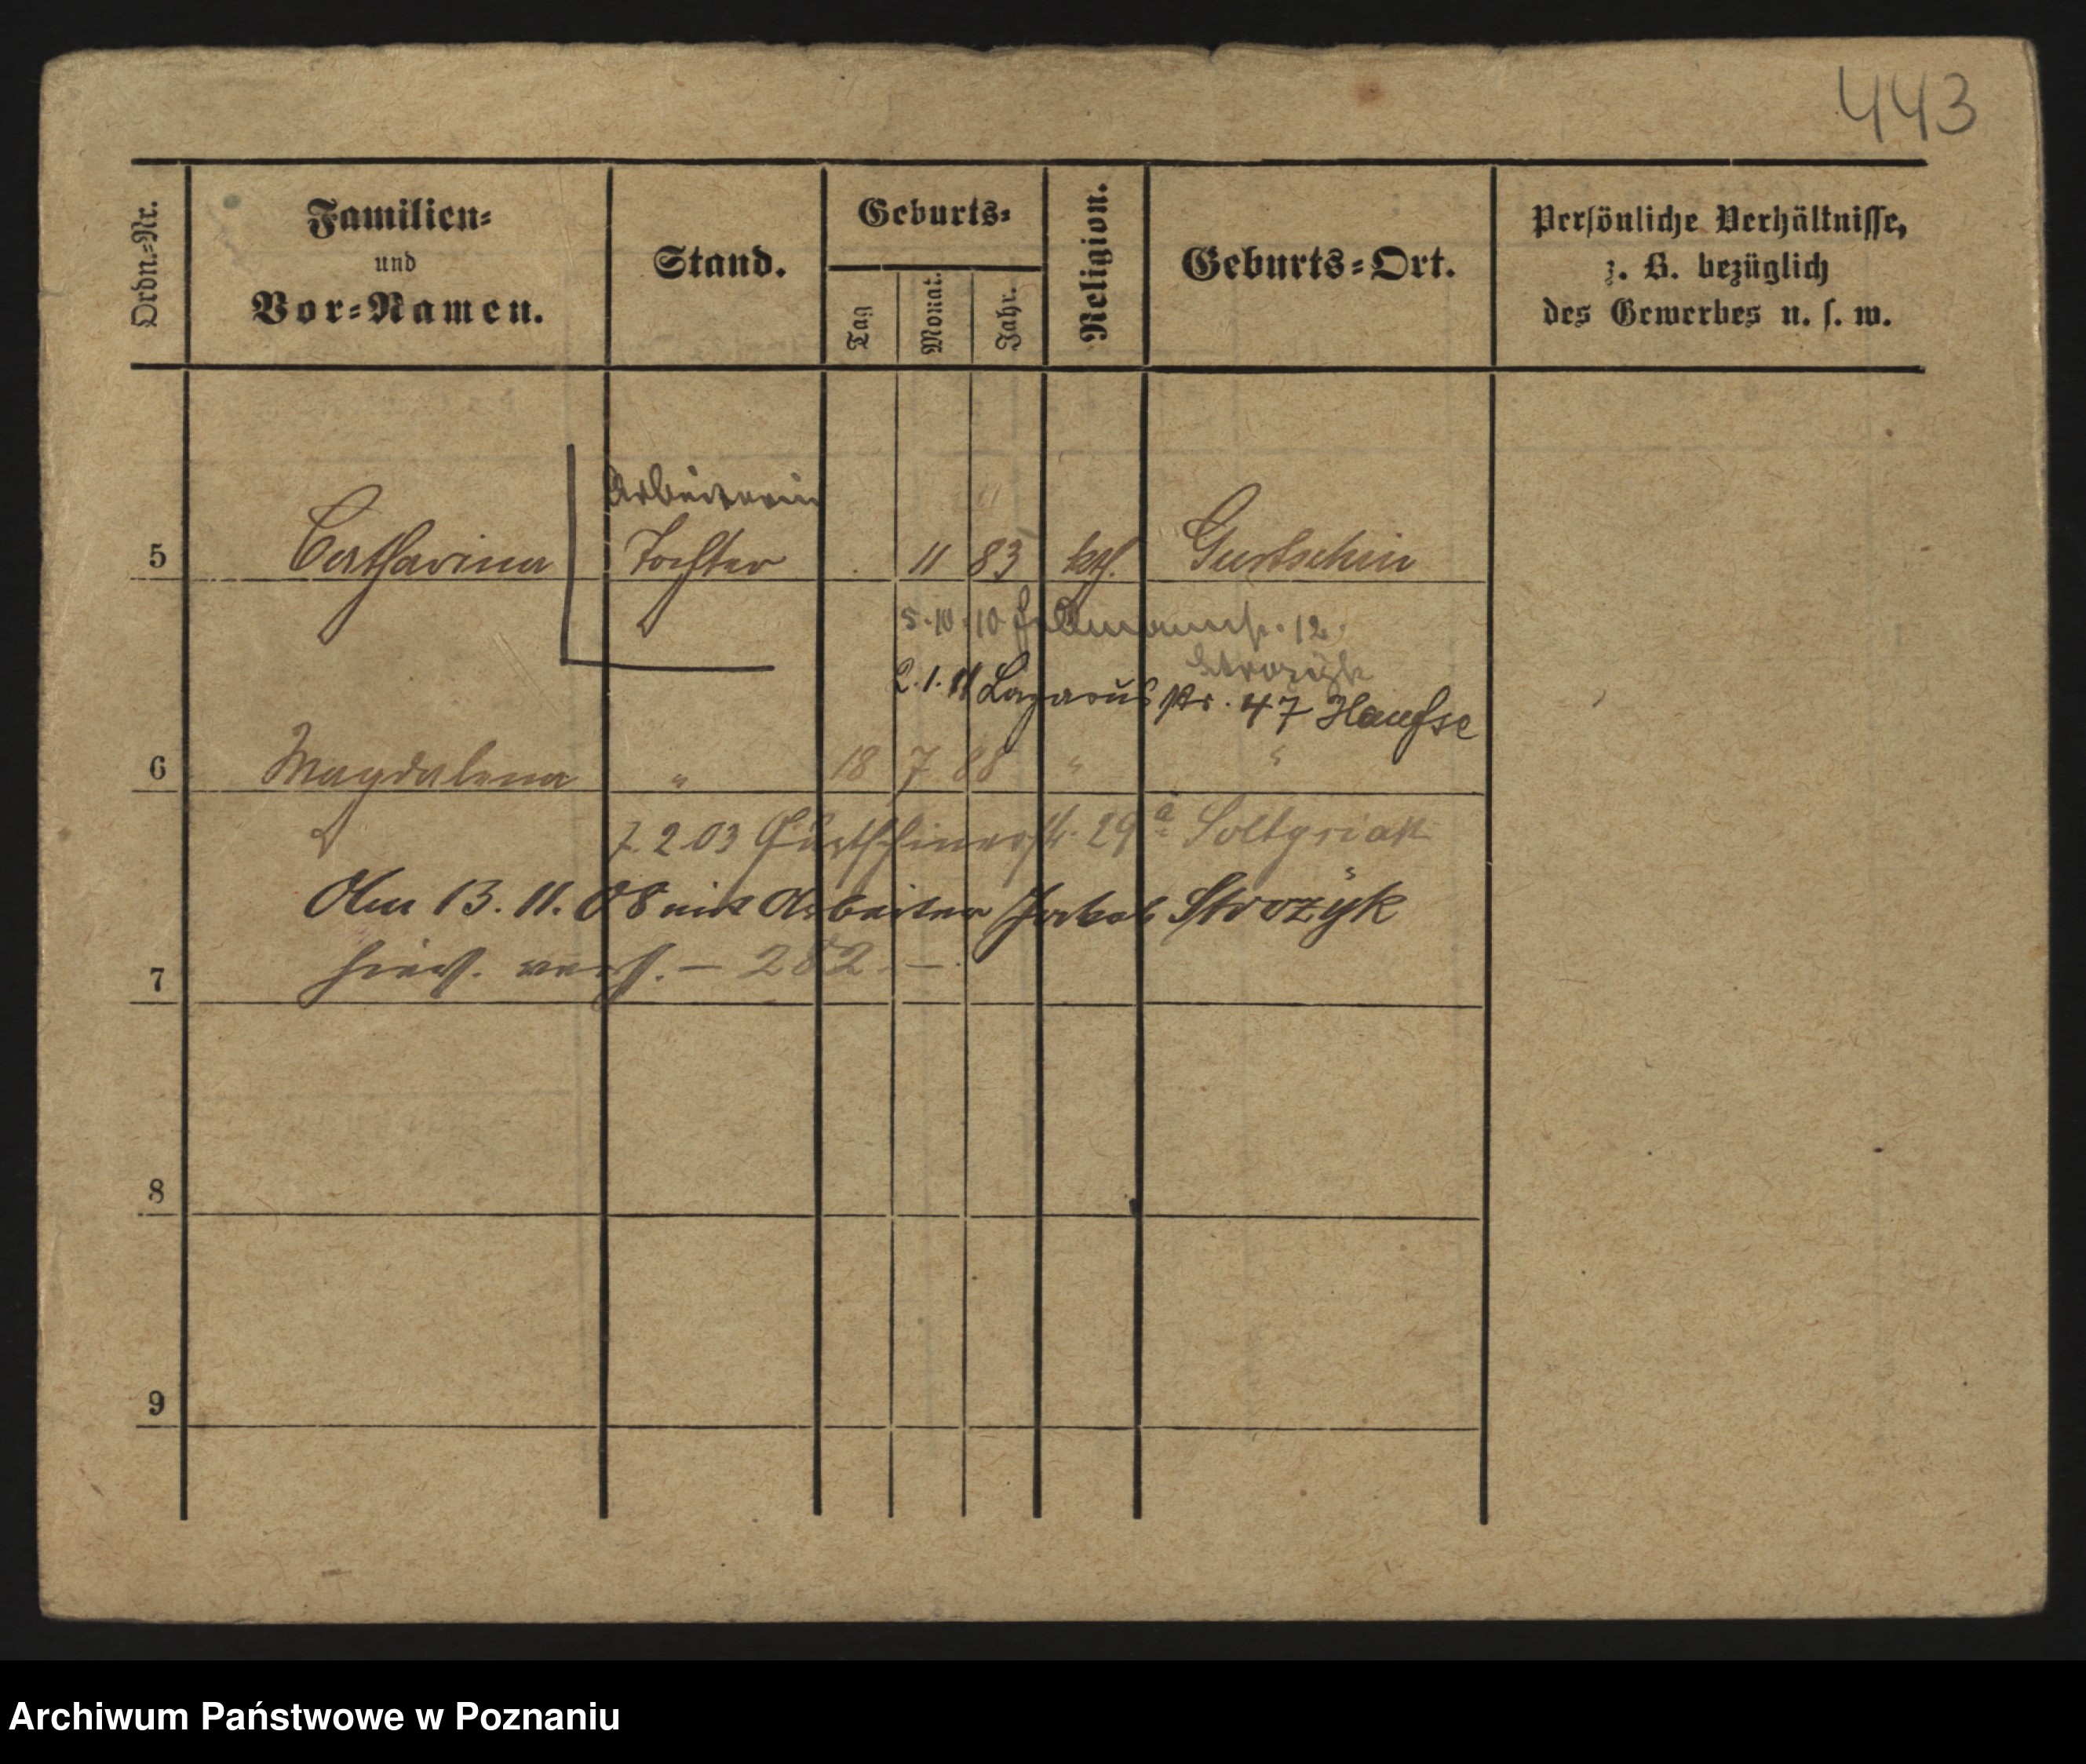 443
Ordn.=Nr.
Familien=
und
Vor=Namen.
Stand.
Geburts=
Tag
Monat.
Jahr.
Religion.
Geburts=Ort.
Persönliche Verhältnisse,
z. B. bezüglich
des Gewerbes u. s. w.
Arbeiterin
5 Catharina Tochter 11 83 kth. Gurtschin
5.10.10 12.
Strozyk
2.1.11 Lazarusstr. 47 Haufse
6 Magdalena " 18 7 88 " "
7.2.03 Gurtschinerstr. 29a
Am 13.11.08 mit Arbeiter Jakob Strozyk
hiers. verh. – 282. –
7
8
9
Archiwum Państwowe w Poznaniu